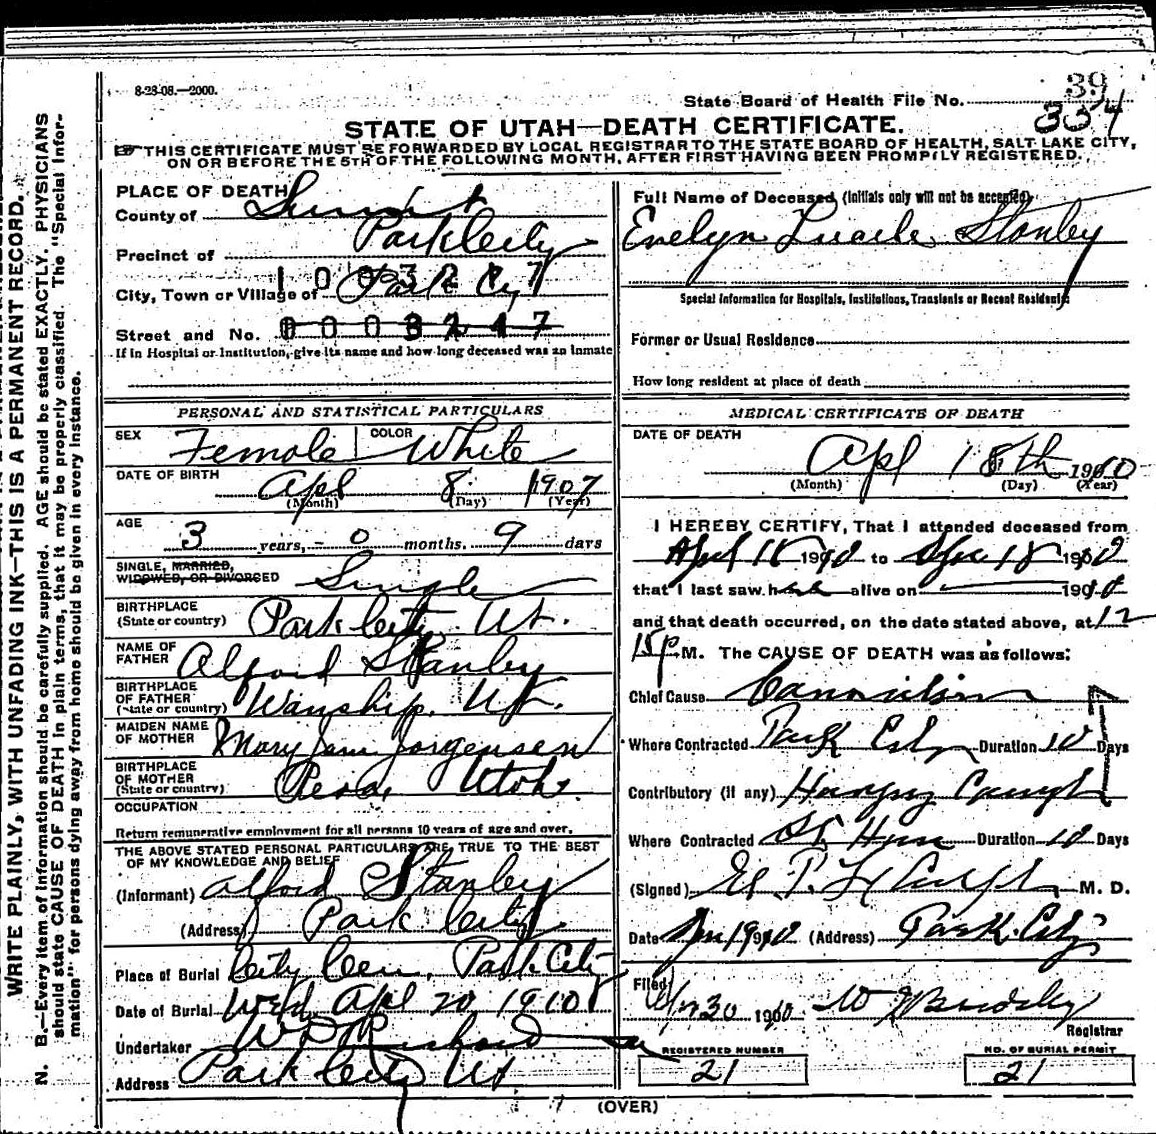 8-28-08.—2000.
39
State Board of Health File No. 334
STATE OF UTAH—DEATH CERTIFICATE.
THIS CERTIFICATE MUST BE FORWARDED BY LOCAL REGISTRAR TO THE STATE BOARD OF HEALTH, SALT LAKE CITY,
ON OR BEFORE THE 5TH OF THE FOLLOWING MONTH, AFTER FIRST HAVING BEEN PROMPTLY REGISTERED.
WRITE PLAINLY, WITH UNFADING INK—THIS IS A PERMANENT RECORD.
N. B.—Every item of information should be carefully supplied. AGE should be stated EXACTLY. PHYSICIANS
should state CAUSE OF DEATH in plain terms, that it may be properly classified. The "Special Infor-
mation" for persons dying away from home should be given in every instance.
PLACE OF DEATH
County of Summit
Precinct of Park City
City, Town or Village of Park City
1003217
Street and No. 0003247
If in Hospital or Institution, give its name and how long deceased was an inmate
PERSONAL AND STATISTICAL PARTICULARS
SEX Female COLOR White
DATE OF BIRTH Apl 8 1907
(Month) (Day) (Year)
AGE 3 years, - 0 months, 9 days
SINGLE, MARRIED,
WIDOWED, OR DIVORCED Single
BIRTHPLACE
(State or country) Park City, Ut.
NAME OF
FATHER Alford Stanley
BIRTHPLACE
OF FATHER
(State or country) Wanship, Ut.
MAIDEN NAME
OF MOTHER Mary Jane Jorgensen
BIRTHPLACE
OF MOTHER
(State or country) Peoa, Utah.
OCCUPATION
Return remunerative employment for all persons 10 years of age and over.
THE ABOVE STATED PERSONAL PARTICULARS ARE TRUE TO THE BEST
OF MY KNOWLEDGE AND BELIEF
(Informant) Alford Stanley
(Address) Park City
Place of Burial City Cem, Park City
Date of Burial Wed, Apl 20 1910
Undertaker W D Richardson
Address Park City Ut
Full Name of Deceased (Initials only will not be accepted)
Evelyn Lucile Stanley
Special Information for Hospitals, Institutions, Transients or Recent Residents
Former or Usual Residence
How long resident at place of death
MEDICAL CERTIFICATE OF DEATH
DATE OF DEATH
Apl 18th 1910
(Month) (Day) (Year)
I HEREBY CERTIFY, That I attended deceased from
April 18 1910 to Apr 18 1910
that I last saw her alive on 1910
and that death occurred, on the date stated above, at 12
15 P M. The CAUSE OF DEATH was as follows:
Chief Cause Convulsion
Where Contracted Park City Duration 10 Days
Contributory (if any) Hooping Cough
Where Contracted At Home Duration 10 Days
(Signed) M. D.
Date Apr 19 1910 (Address) Park City
Filed 4/30 1910 W Beardsley
Registrar
REGISTERED NUMBER
21
NO. OF BURIAL PERMIT
21
(OVER)